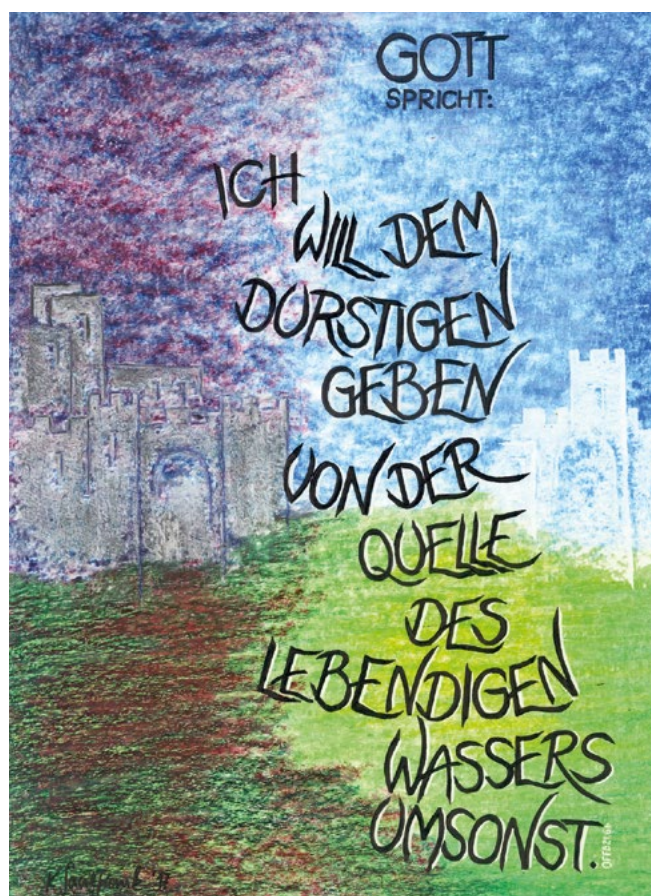 GOTT
SPRICHT:
ICH
WILL DEM
DURSTIGEN
GEBEN
VON DER
QUELLE
DES
LEBENDIGEN
WASSERS
UMSONST.